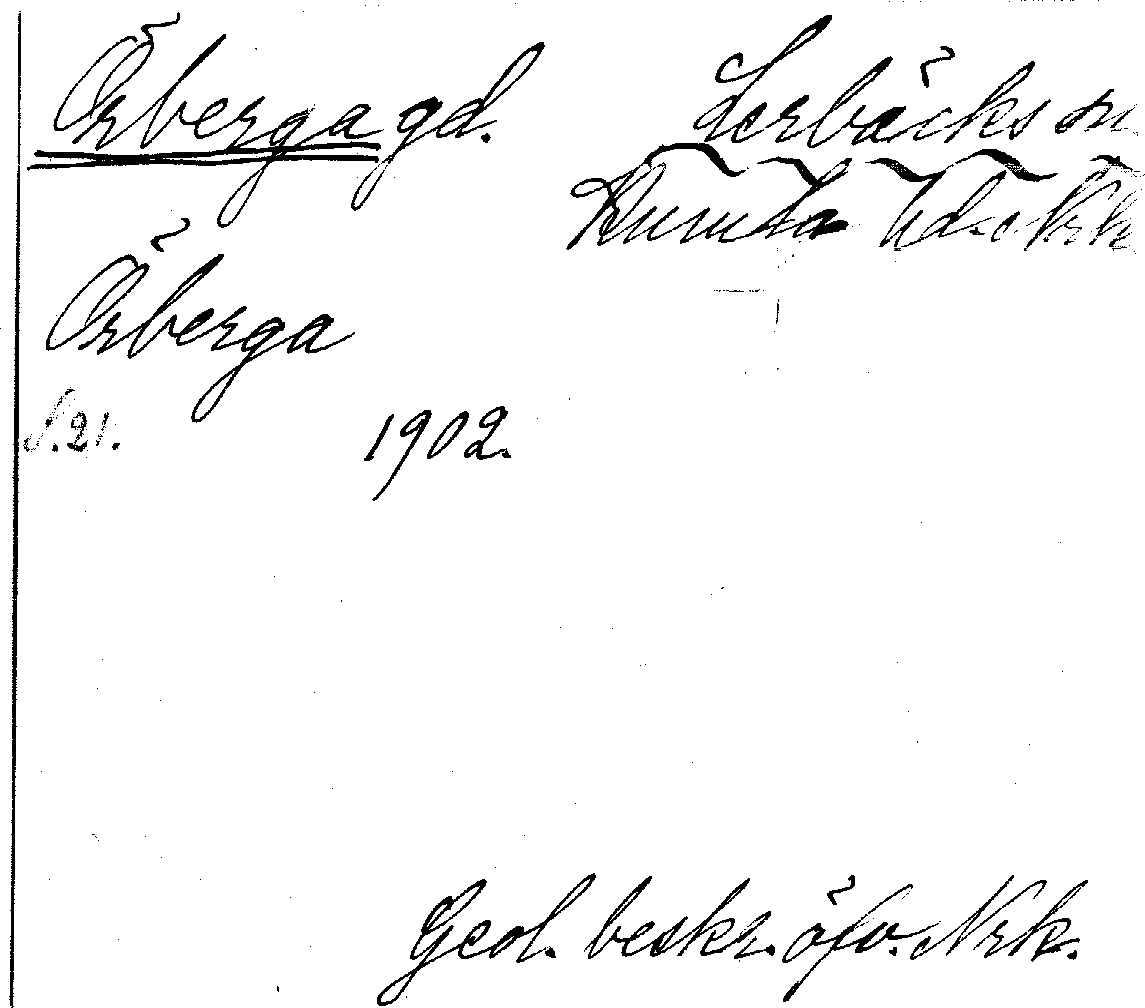 Örberga gd. Lerbäcks sn.
Kumla hd. Nrk
Örberga
S. 21. 1902.
Geol. beskr. öfv. Nrk.